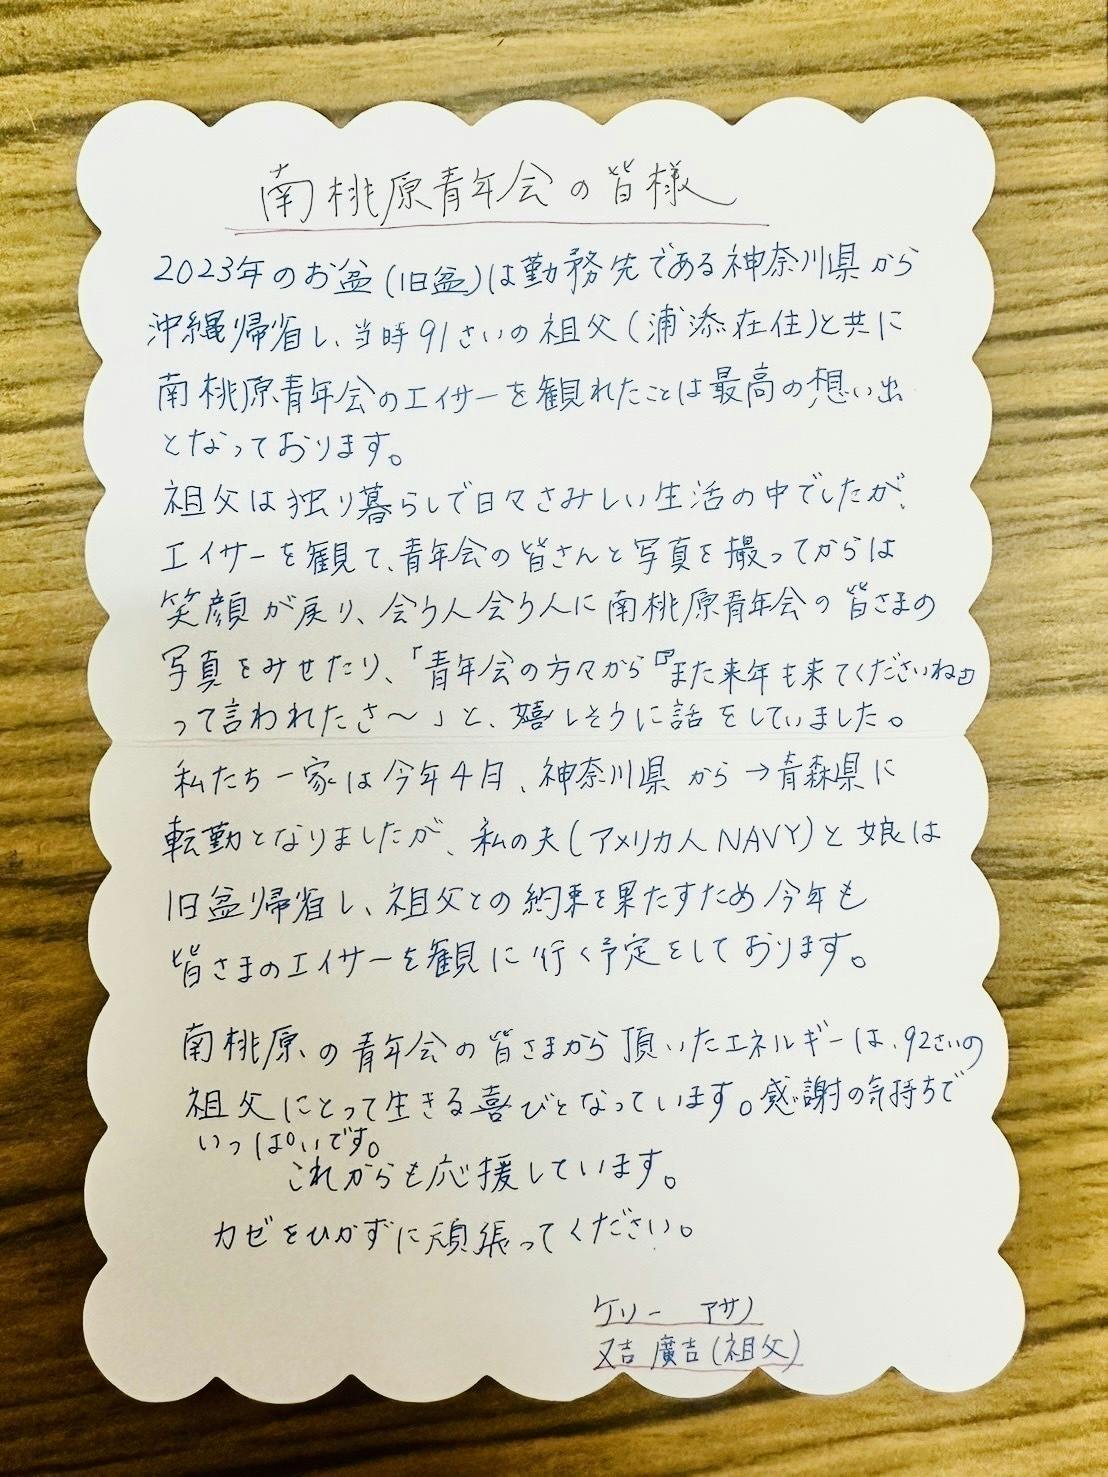 南桃原青年会の皆様
2023年のお盆(旧盆)は勤務先である神奈川県から
沖縄帰省し、当時91さいの祖父(浦添在住)と共に
南桃原青年会のエイサーを観れたことは最高の想い出
となっております。
祖父は独り暮らしで日々さみしい生活の中でしたが、
エイサーを観て、青年会の皆さんと写真を撮ってからは
笑顔が戻り、会う人会う人に南桃原青年会の皆さまの
写真をみせたり、「青年会の方々から『また来年も来てくださいね』
って言われたさ〜」と、嬉しそうに話をしていました。
私たち一家は今年4月、神奈川県から→青森県に
転勤となりましたが、私の夫(アメリカ人NAVY)と娘は
旧盆帰省し、祖父との約束を果たすため今年も
皆さまのエイサーを観に行く予定をしております。
南桃原の青年会の皆さまから頂いたエネルギーは、92さいの
祖父にとって生きる喜びとなっています。感謝の気持ちで
いっぱいです。
これからも応援しています。
カゼをひかずに頑張ってください。
ケリー アサノ
又吉 廣吉(祖父)